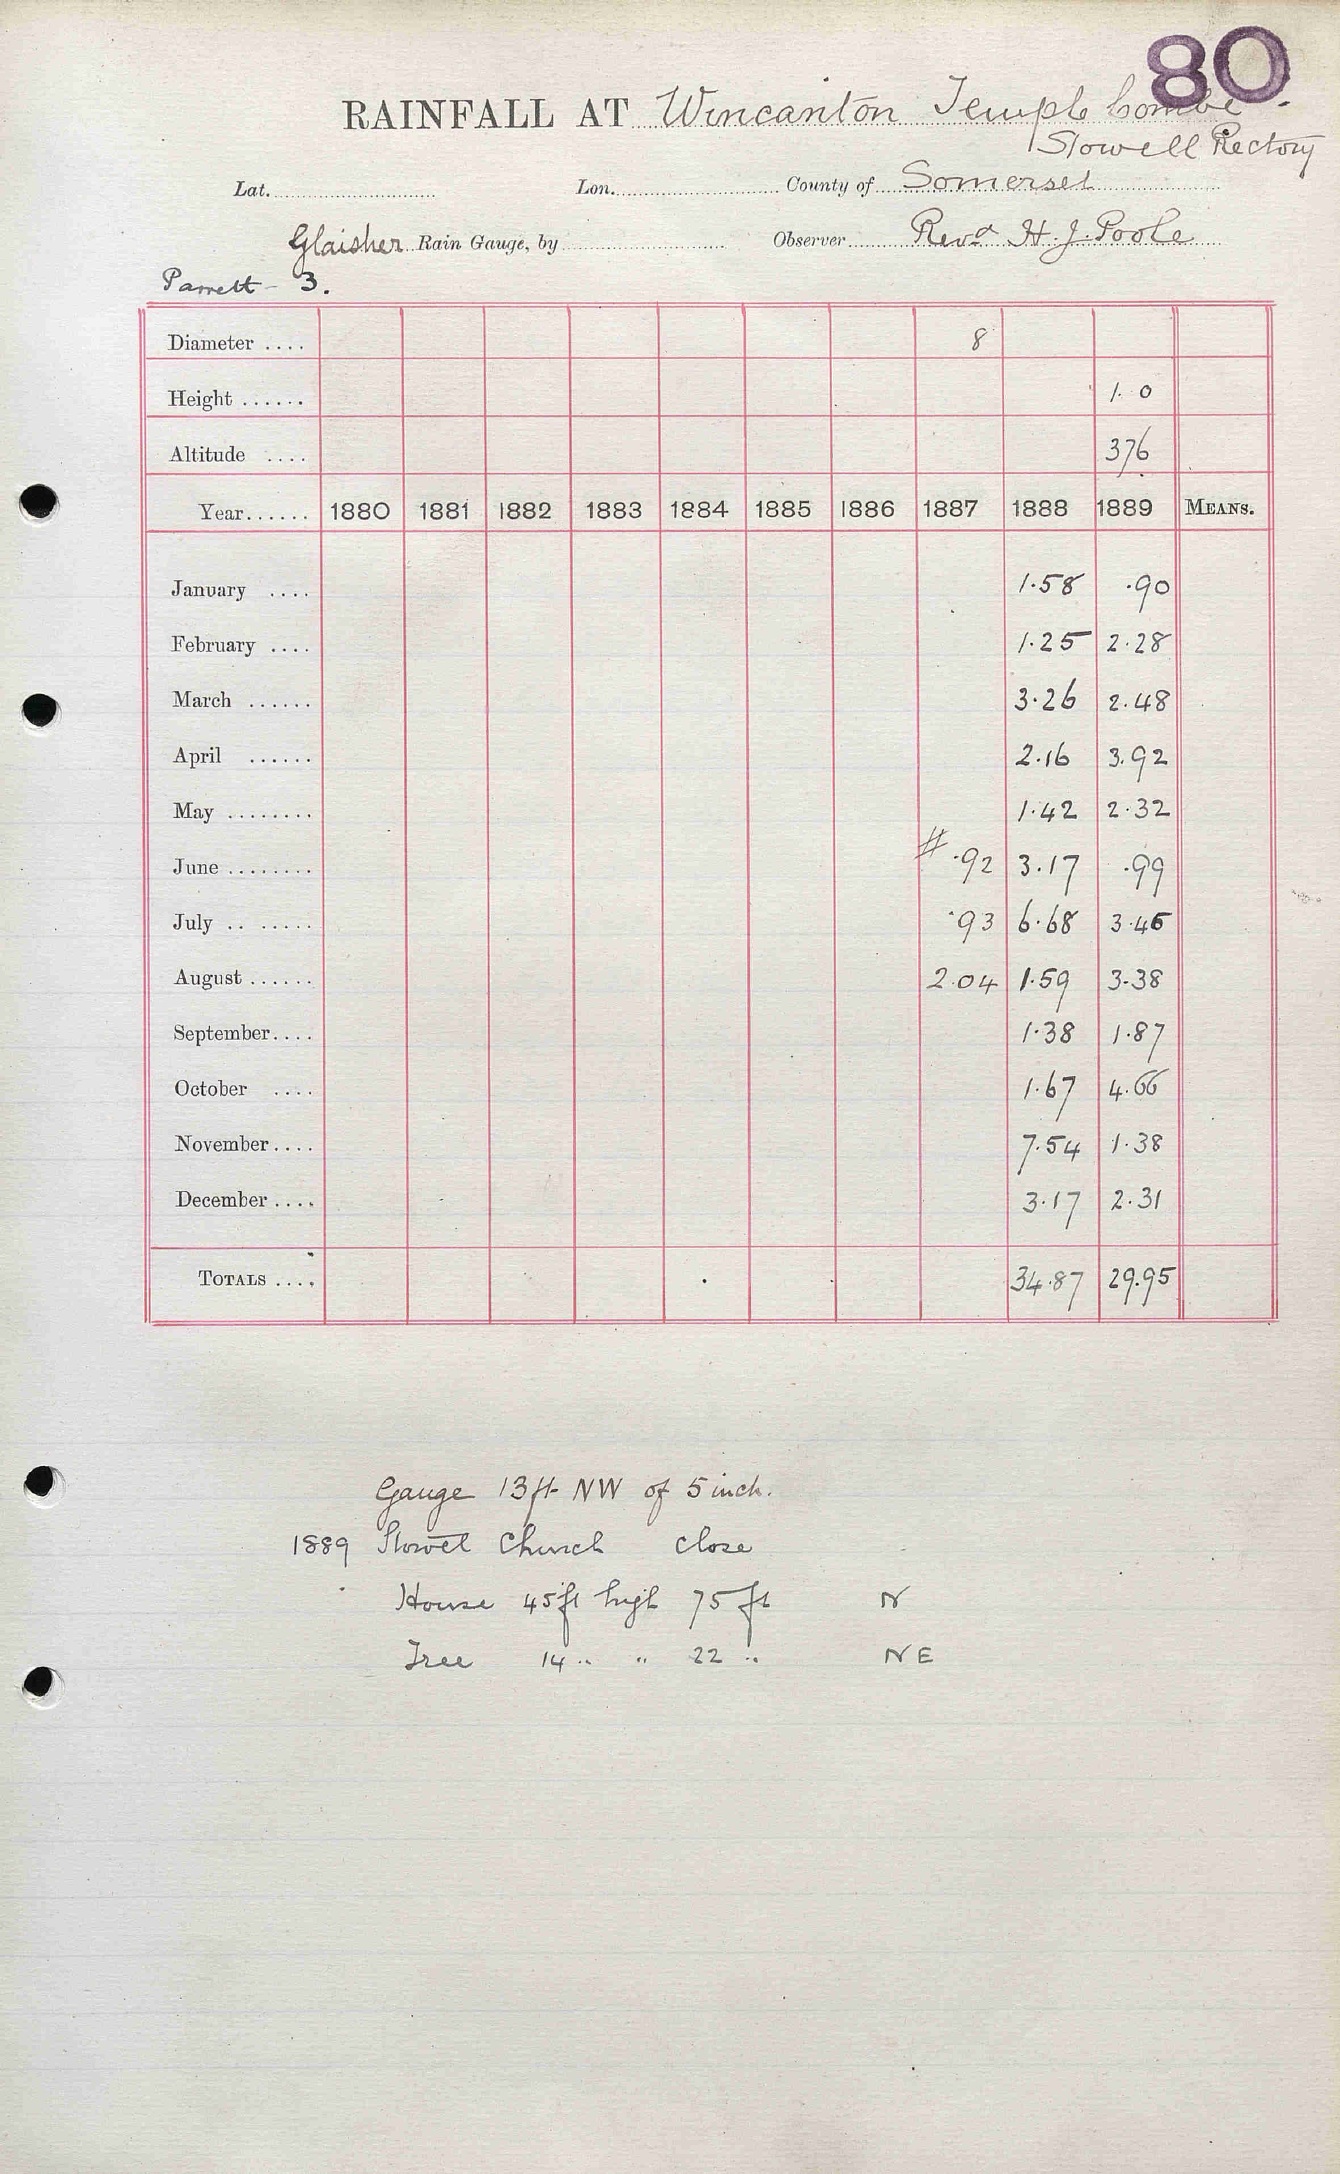 80
RAINFALL AT Wincanton Temple Combe
Stowell Rectory
Lat. Lon. County of Somerset
Glaisher Rain Gauge, by Observer Revd H. J. Poole
Parrett - 3.
Diameter .... 8
Height ...... 1. 0
Altitude .... 376
Year...... 1880 1881 1882 1883 1884 1885 1886 1887 1888 1889 MEANS.
January .... 1.58 .90
February .... 1.25 2.28
March ...... 3.26 2.48
April ...... 2.16 3.92
May ........ 1.42 2.32
June ........ # .92 3.17 .99
July .. ..... .93 6.68 3.46
August ...... 2.04 1.59 3.38
September.... 1.38 1.87
October .... 1.67 4.66
November.... 7.54 1.38
December .... 3.17 2.31
TOTALS .... 34.87 29.95
Gauge 13ft NW of 5 inch.
1889 Stowel Church close
House 45ft high 75 ft N
Tree 14 " " 22 " NE